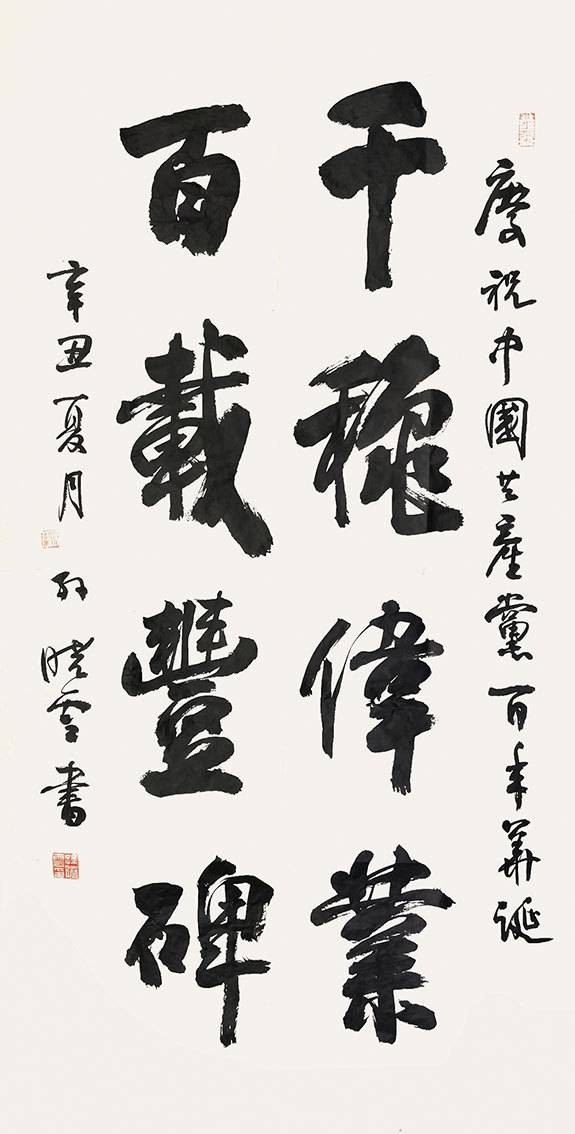 慶祝中國共產黨百年華誕
千穐偉業
百載豐碑
辛丑夏月 孙曉雲書